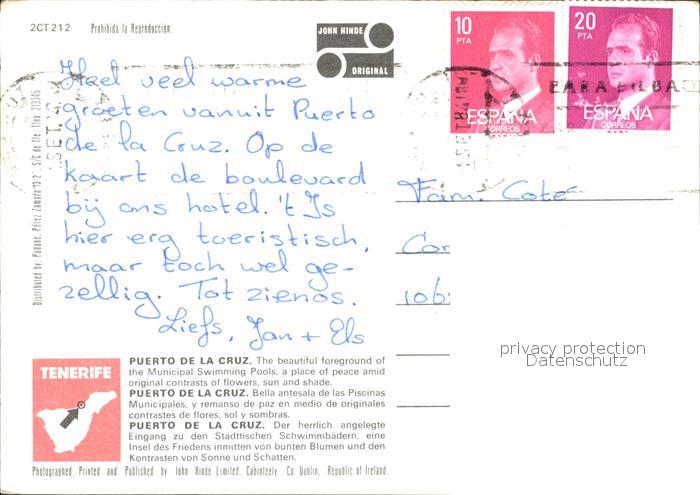 2CT212 Prohibida la Reproduccion.
JOHN HINDE
ORIGINAL
10
PTA
ESPAÑA
CORREOS
20
PTA
ESPAÑA
CORREOS
Heel veel warme
groeten vanuit Puerto
de la Cruz. Op de
kaart de boulevard
bij ons hotel. 't Is
hier erg toeristisch,
maar toch wel ge-
zellig. Tot ziens.
Liefs, Jan + Els
Fam. Coté
Distributed by: Padane, Pérez Zamora
privacy protection
Datenschutz
TENERIFE
PUERTO DE LA CRUZ. The beautiful foreground of
the Municipal Swimming Pools, a place of peace amid
original contrasts of flowers, sun and shade.
PUERTO DE LA CRUZ. Bella antesala de las Piscinas
Municipales, y remanso de paz en medio de originales
contrastes de flores, sol y sombras.
PUERTO DE LA CRUZ. Der herrlich angelegte
Eingang zu den Stadttischen Schwimmbädern, eine
Insel des Friedens inmitten von bunten Blumen und den
Kontrasten von Sonne und Schatten.
Photographed, Printed and Published by John Hinde Limited, Cabinteely, Co. Dublin, Republic of Ireland.